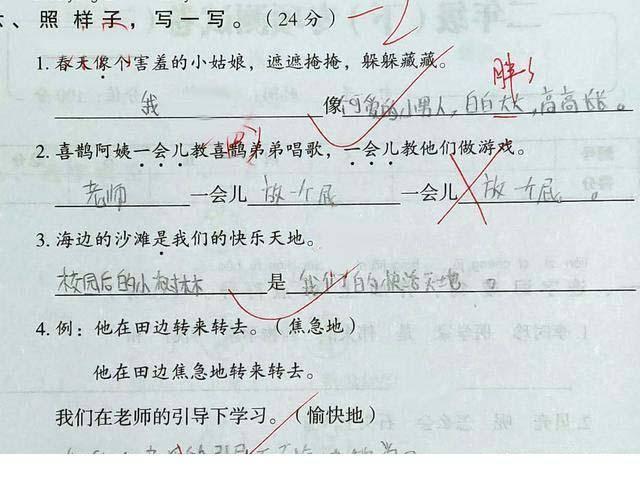 六、照样子，写一写。（24分） -2
1. 春天像个害羞的小姑娘，遮遮掩掩，躲躲藏藏。
胖
我 像 可爱的小男人，白白大大，高高长长。
2. 喜鹊阿姨一会儿教喜鹊弟弟唱歌，一会儿教他们做游戏。
老师 一会儿 放一个屁 一会儿 放一个屁。
3. 海边的沙滩是我们的快乐天地。
校园后的小树林 是 我们的快活天地。
4. 例：他在田边转来转去。（焦急地）
他在田边焦急地转来转去。
我们在老师的引导下学习。（愉快地）